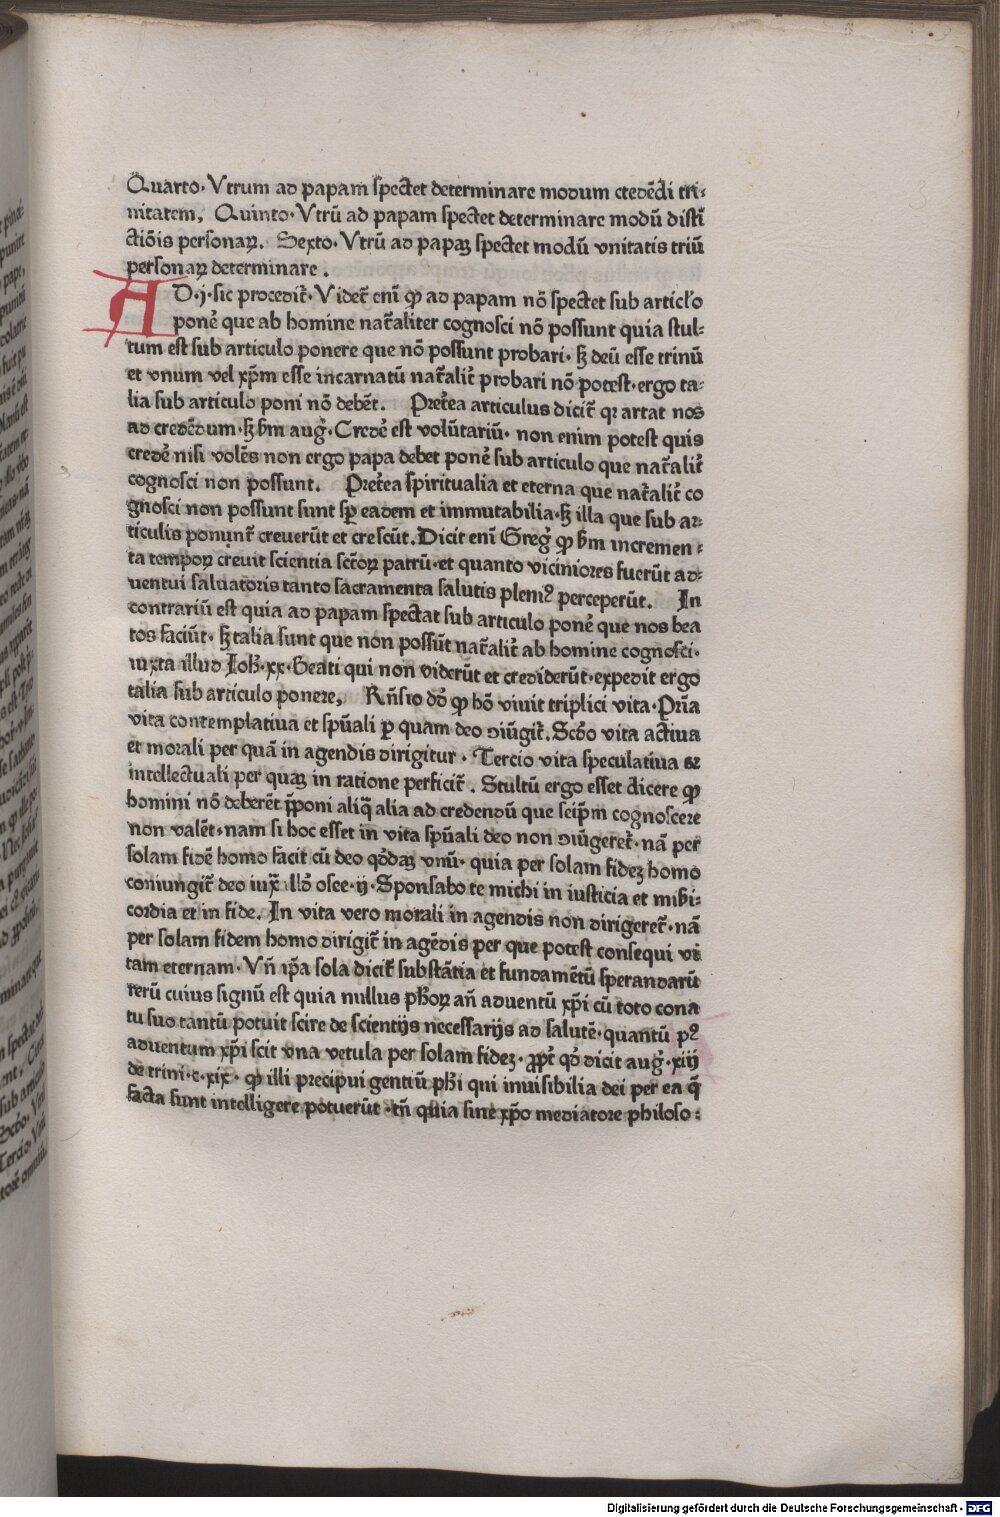 Quarto. Vtrum ad papam spectet determinare modum ctedēdi tri⸗
nitatem, Quinto. Vtrū ad papam spectet determinare modū disti̅
ctiōis personaꝝ. Sexto. Vtrū ad papaꝫ spectet modū vnitatis triū
personaꝝ determinare.
AD.j. sic procedit̃. Videt̃ eni̅ ꝙ ad papam nō spectet sub articl'o
ponē que ab homine nat̃aliter cognosci nō possunt quia stul⸗
tum est sub articulo ponere que nō possunt probari. sꝫ deū esse trinū
et vnum vel xp̄m esse incarnatū nat̃alit̃ probari nō potest. ergo ta⸗
lia sub articulo poni nō debēt. Pret̃ea articulus dicit̃ qꝛ artat nos
ad credēdum. sꝫ bm aug̃. Credē est volūtariū. non enim potest quis
credē nisi volēs non ergo papa debet ponē sub articulo que nat̃alit̃
cognosci non possunt. Pret̃ea spiritualia et eterna que nat̃alit̃ co
gnosci non possunt sunt sꝑ eadem et immutabilia. sꝫ illa que sub ar⸗
ticulis ponunt̃ creuerūt et crescūt. Dicit eni̅ Greg̃ ꝙ bm incremen⸗
ta tempoꝝ creuit scientia sct̄oꝝ patrū. et quanto viciniores fuerūt ad⸗
uentui saluatoris tanto sacramenta salutis pleniꝰ perceperūt. In
contrariū est quia ad papam spectat sub articulo ponē que nos bea
tos faciūt. sꝫ talia sunt que non possūt nat̃alit̃ ab homine cognosci.
iuxta illud Ioh̄.xx. Beati qui non viderūt et crediderūt. expedit ergo
talia sub articulo ponere, Rn̄sio dō ꝙ hō viuit triplici vita. Pri̅a
vita contemplatiua et spūali ꝑ quam deo ɔiūgit̃. Scd̄o vita actiua
et morali per quā in agendis dirigitur. Tercio vita speculatiua ⁊
intellectuali per quaꝫ in ratione perficit̃. Stultū ergo esset dicere ꝙ
homini nō deberēt p̄poni aliq̄ alia ad credendū que seip̄m cognoscere
non valēt. nam si hoc esset in vita spūali deo non ɔiūgeret̃. nā per
solam fidē homo facit cū deo qōdaꝫ vnū. quia per solam fideꝫ homo
coniungit̃ deo iux̄ illō osee.ij. Sponsabo te michi in iusticia et mi̅bi⸗
cordia et in fide. In vita vero morali in agendis non dirigeret̃. nā
per solam fidem homo dirigit̃ in agēdis per que potest consequi vi
tam eternam. Vn̄ ip̄a sola dicit̃ substātia et fundamētū sperandarū
rerū cuius signū est quia nullus ph̄oꝝ an̄ aduentū xp̄i cū toto cona
tu suo tantū potuit scire de scientijs necessarijs ad salutē. quantū pꝰ
aduentum xp̄i scit vna vetula per solam fideꝫ. ꝓpt̃ qō dicit aug̃.xiij
de trini.c.xix. ꝙ illi precipui gentiū ph̄i qui inuisibilia dei per ea q̄
facta sunt intelligere potuerūt. tn̄ quia sine xp̄o mediatore philoso⸗
Digitalisierung gefördert durch die Deutsche Forschungsgemeinschaft - DFG